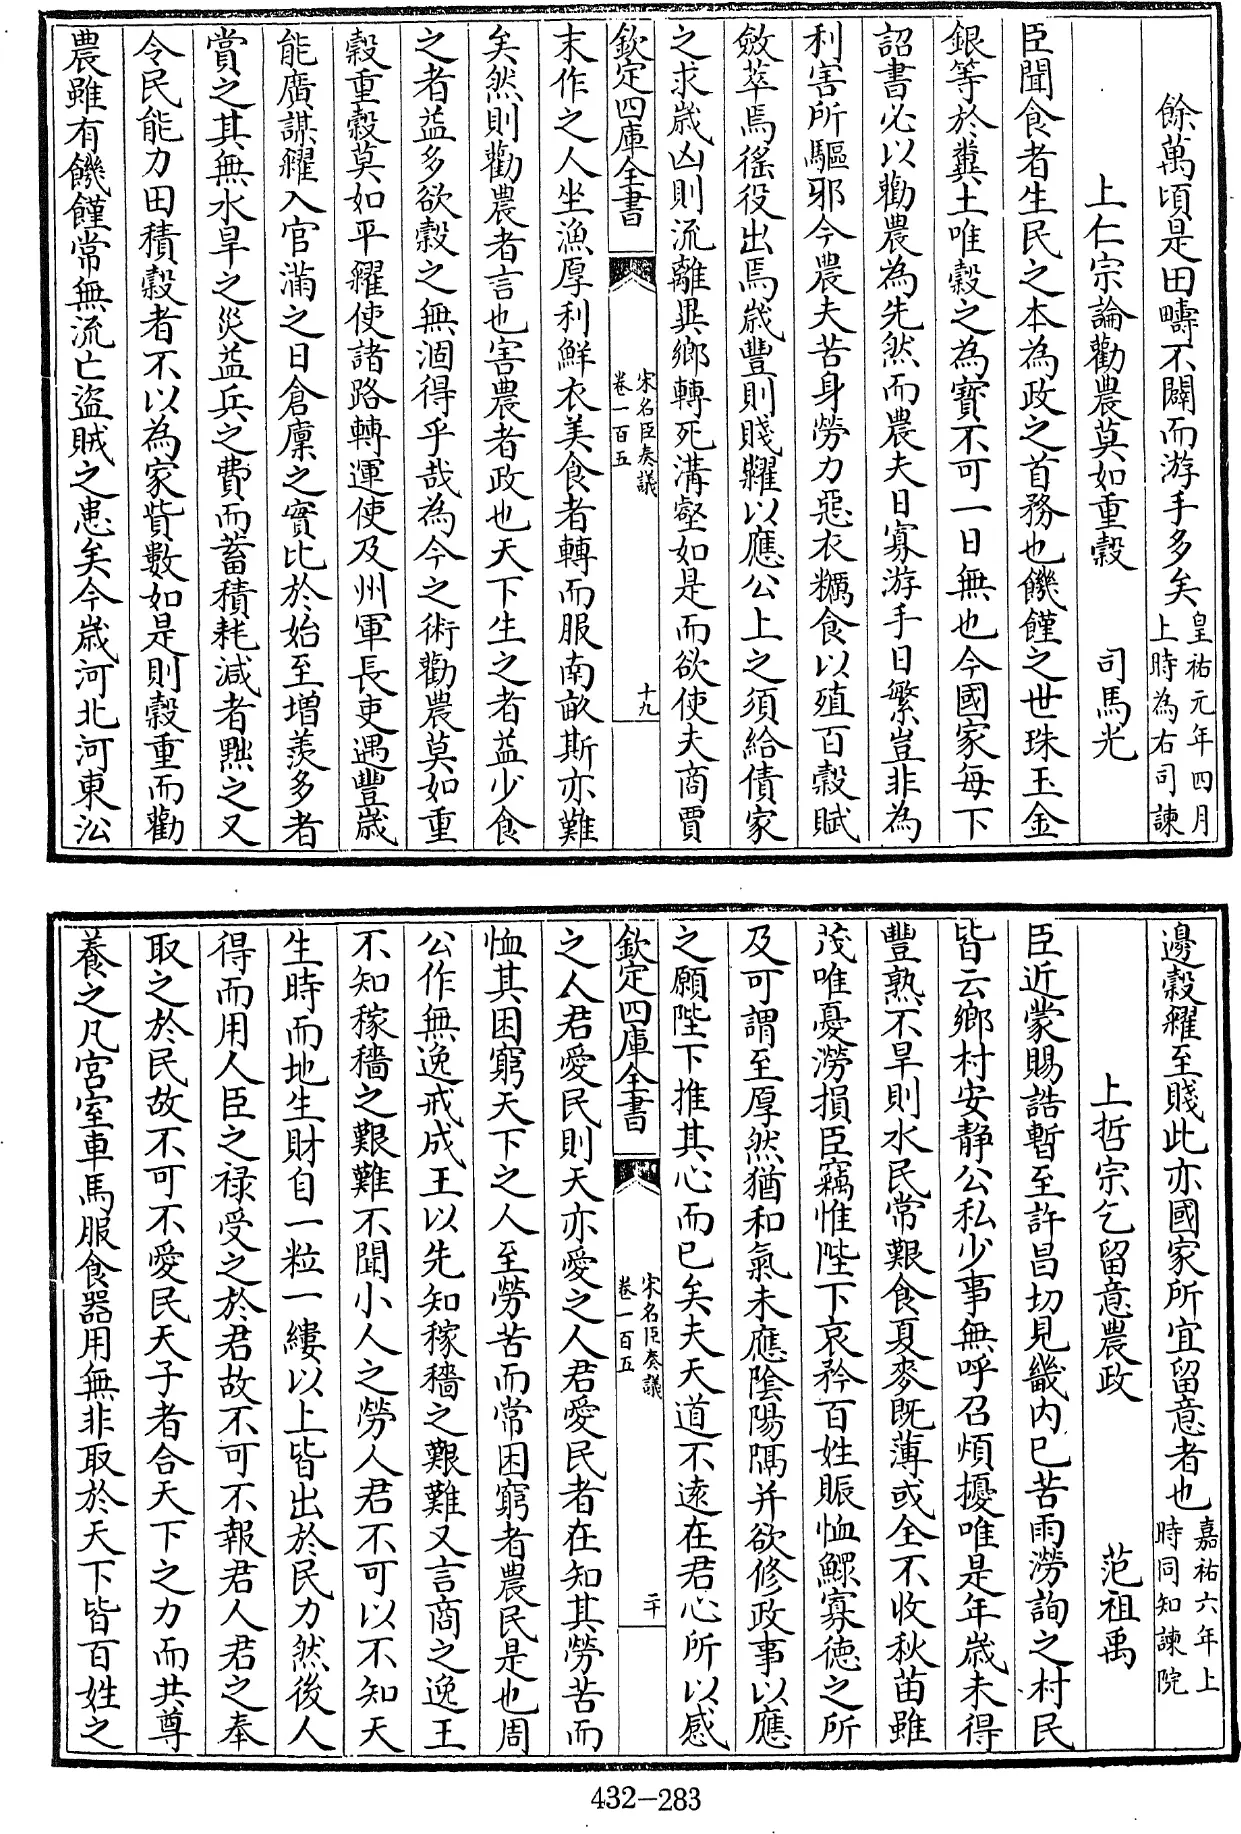 餘萬頃是田疇不闢而游手多矣皇祐元年四月上時為右司諫
上仁宗論勸農莫如重穀　司馬光
臣聞食者生民之本為政之首務也饑饉之世珠玉金
銀等於糞土唯穀之為寳不可一日無也今國家每下
詔書必以勸農為先然而農夫日寡游手日繁豈非為
利害所驅邪今農夫苦身勞力惡衣糲食以殖百穀賦
斂萃焉徭役出焉歳豐則賤糶以應公上之須給債家
之求歳凶則流離異鄉轉死溝壑如是而欲使夫商賈
欽定四庫全書　宋名臣奏議卷一百五　十九
末作之人坐漁厚利鮮衣美食者轉而服南畝斯亦難
矣然則勸農者言也害農者政也天下生之者益少食
之者益多欲穀之無涸得乎哉為今之術勸農莫如重
穀重穀莫如平糴使諸路轉運使及州軍長吏遇豐歳
能廣謀糴入官滿之日倉廩之實比於始至増羨多者
賞之其無水旱之災益兵之費而蓄積耗減者黜之又
令民能力田積穀者不以為家貲數如是則穀重而勸
農雖有饑饉常無流亡盜賊之患矣今歳河北河東㳂
邊穀糴至賤此亦國家所宜留意者也嘉祐六年上時同知諫院
上哲宗乞留意農政　范祖禹
臣近蒙賜誥暫至許昌切見畿内已苦雨澇詢之村民
皆云鄉村安静公私少事無呼召煩擾唯是年歳未得
豐熟不旱則水民常艱食夏麥既薄或全不收秋苗雖
茂唯憂澇損臣竊惟陛下哀矜百姓賑恤鰥寡德之所
及可謂至厚然猶和氣未應陰陽隔并欲修政事以應
之願陛下推其心而已矣夫天道不逺在君心所以感
欽定四庫全書　宋名臣奏議卷一百五　二十
之人君愛民則天亦愛之人君愛民者在知其勞苦而
恤其困窮天下之人至勞苦而常困窮者農民是也周
公作無逸戒成王以先知稼穡之艱難又言商之逸王
不知稼穡之艱難不聞小人之勞人君不可以不知天
生時而地生財自一粒一縷以上皆出於民力然後人
得而用人臣之禄受之於君故不可不報君人君之奉
取之於民故不可不愛民天子者合天下之力而共尊
養之凡宮室車馬服食器用無非取於天下皆百姓之
432-283